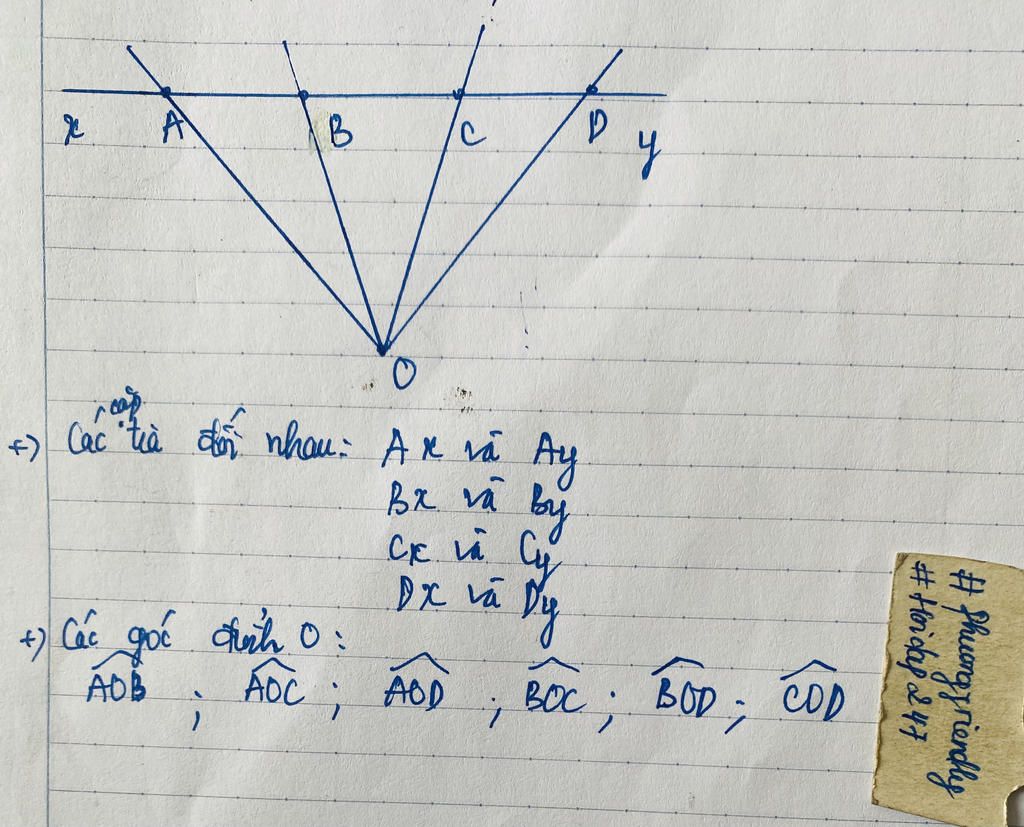 x A B C D y
O
+) Các cặp tia đối nhau: Ax và Ay
Bx và By
Cx và Cy
Dx và Dy
+) Các góc đỉnh O:
AOB ; AOC ; AOD ; BOC ; BOD ; COD
# phuongfriendly
# Hoidap247